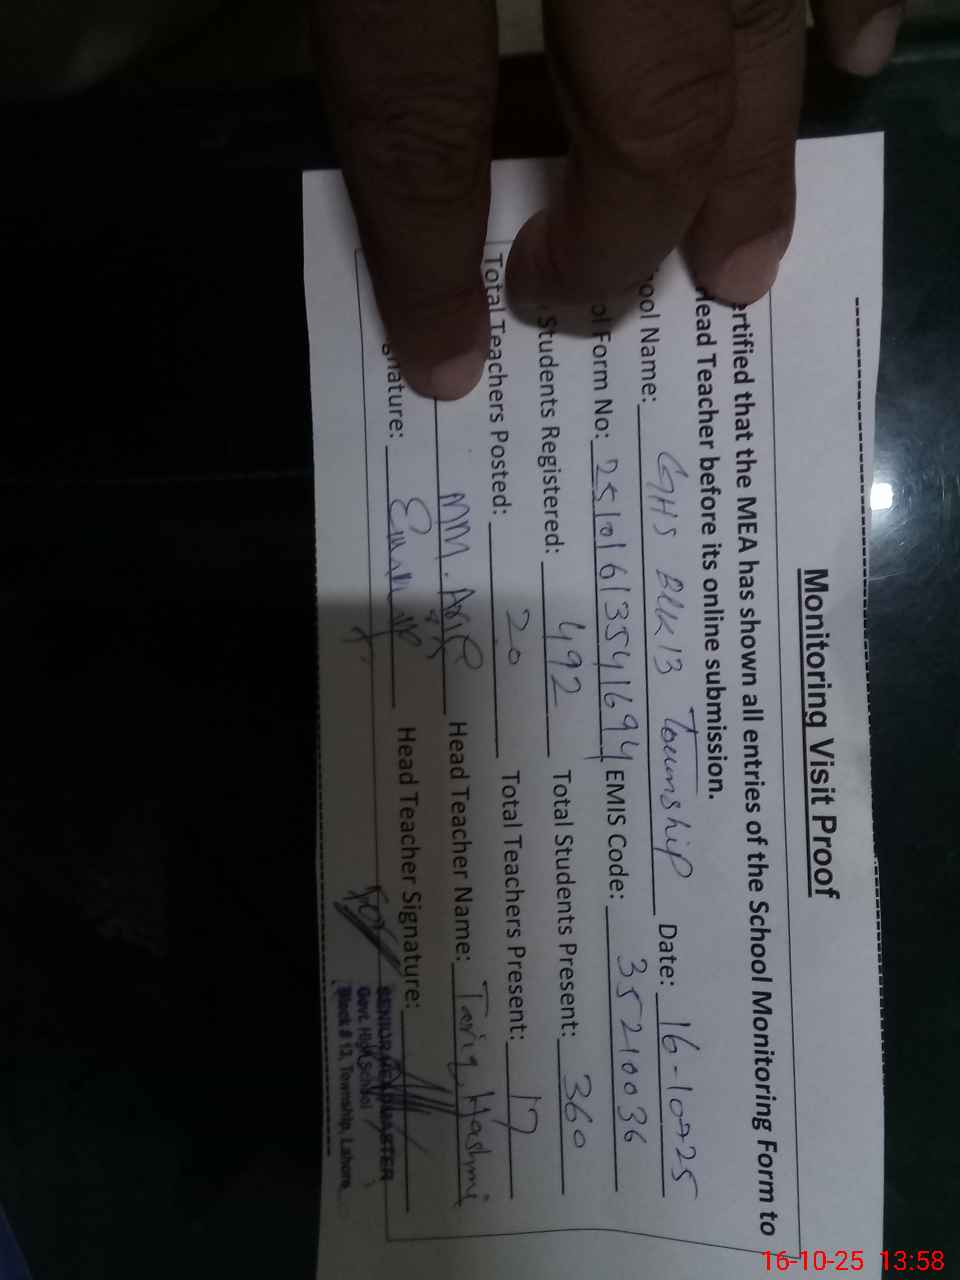 Monitoring Visit Proof
ertified that the MEA has shown all entries of the School Monitoring Form to
Head Teacher before its online submission.
ool Name: GHS Blk 13 Township Date: 16-10-25
ol Form No: 25101613541694 EMIS Code: 35210036
Students Registered: 492 Total Students Present: 360
Total Teachers Posted: 20 Total Teachers Present: 17
MM. Asif Head Teacher Name: Tariq Hashmi
gnature: Head Teacher Signature:
For
SENIOR HEADMASTER
Govt. High School
Block # 13, Township, Lahore
16-10-25 13:58